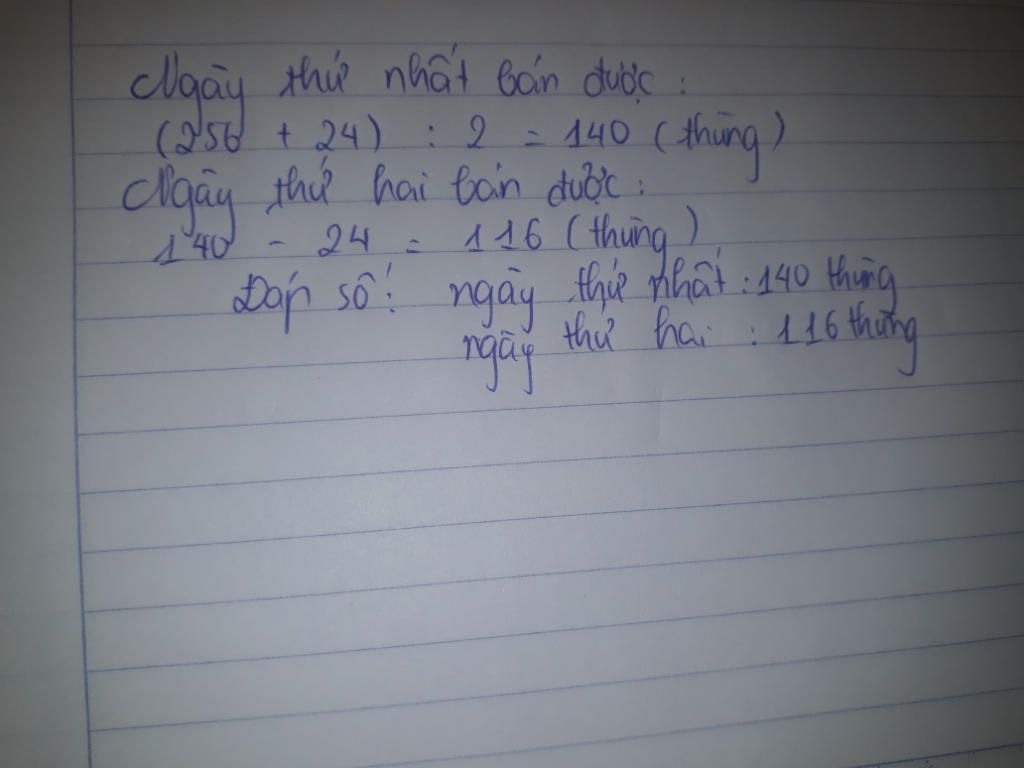 Ngày thứ nhất bán được :
(256 + 24) : 2 = 140 (thùng)
Ngày thứ hai bán được :
140 - 24 = 116 (thùng)
Đáp số : ngày thứ nhất : 140 thùng
ngày thứ hai : 116 thùng